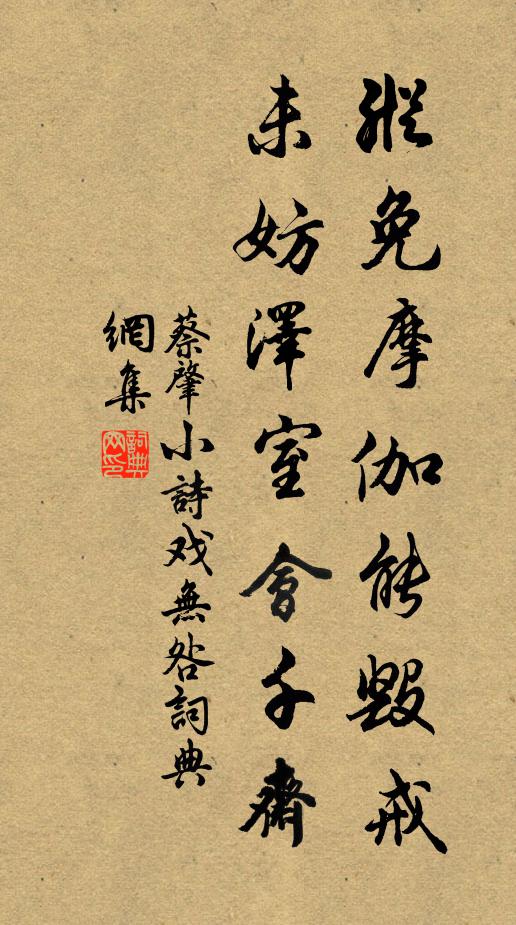 縱免摩伽能毀戒
未妨澤室會千齋
蔡肇小詩戏無咎詞典
網集
詞典
网印